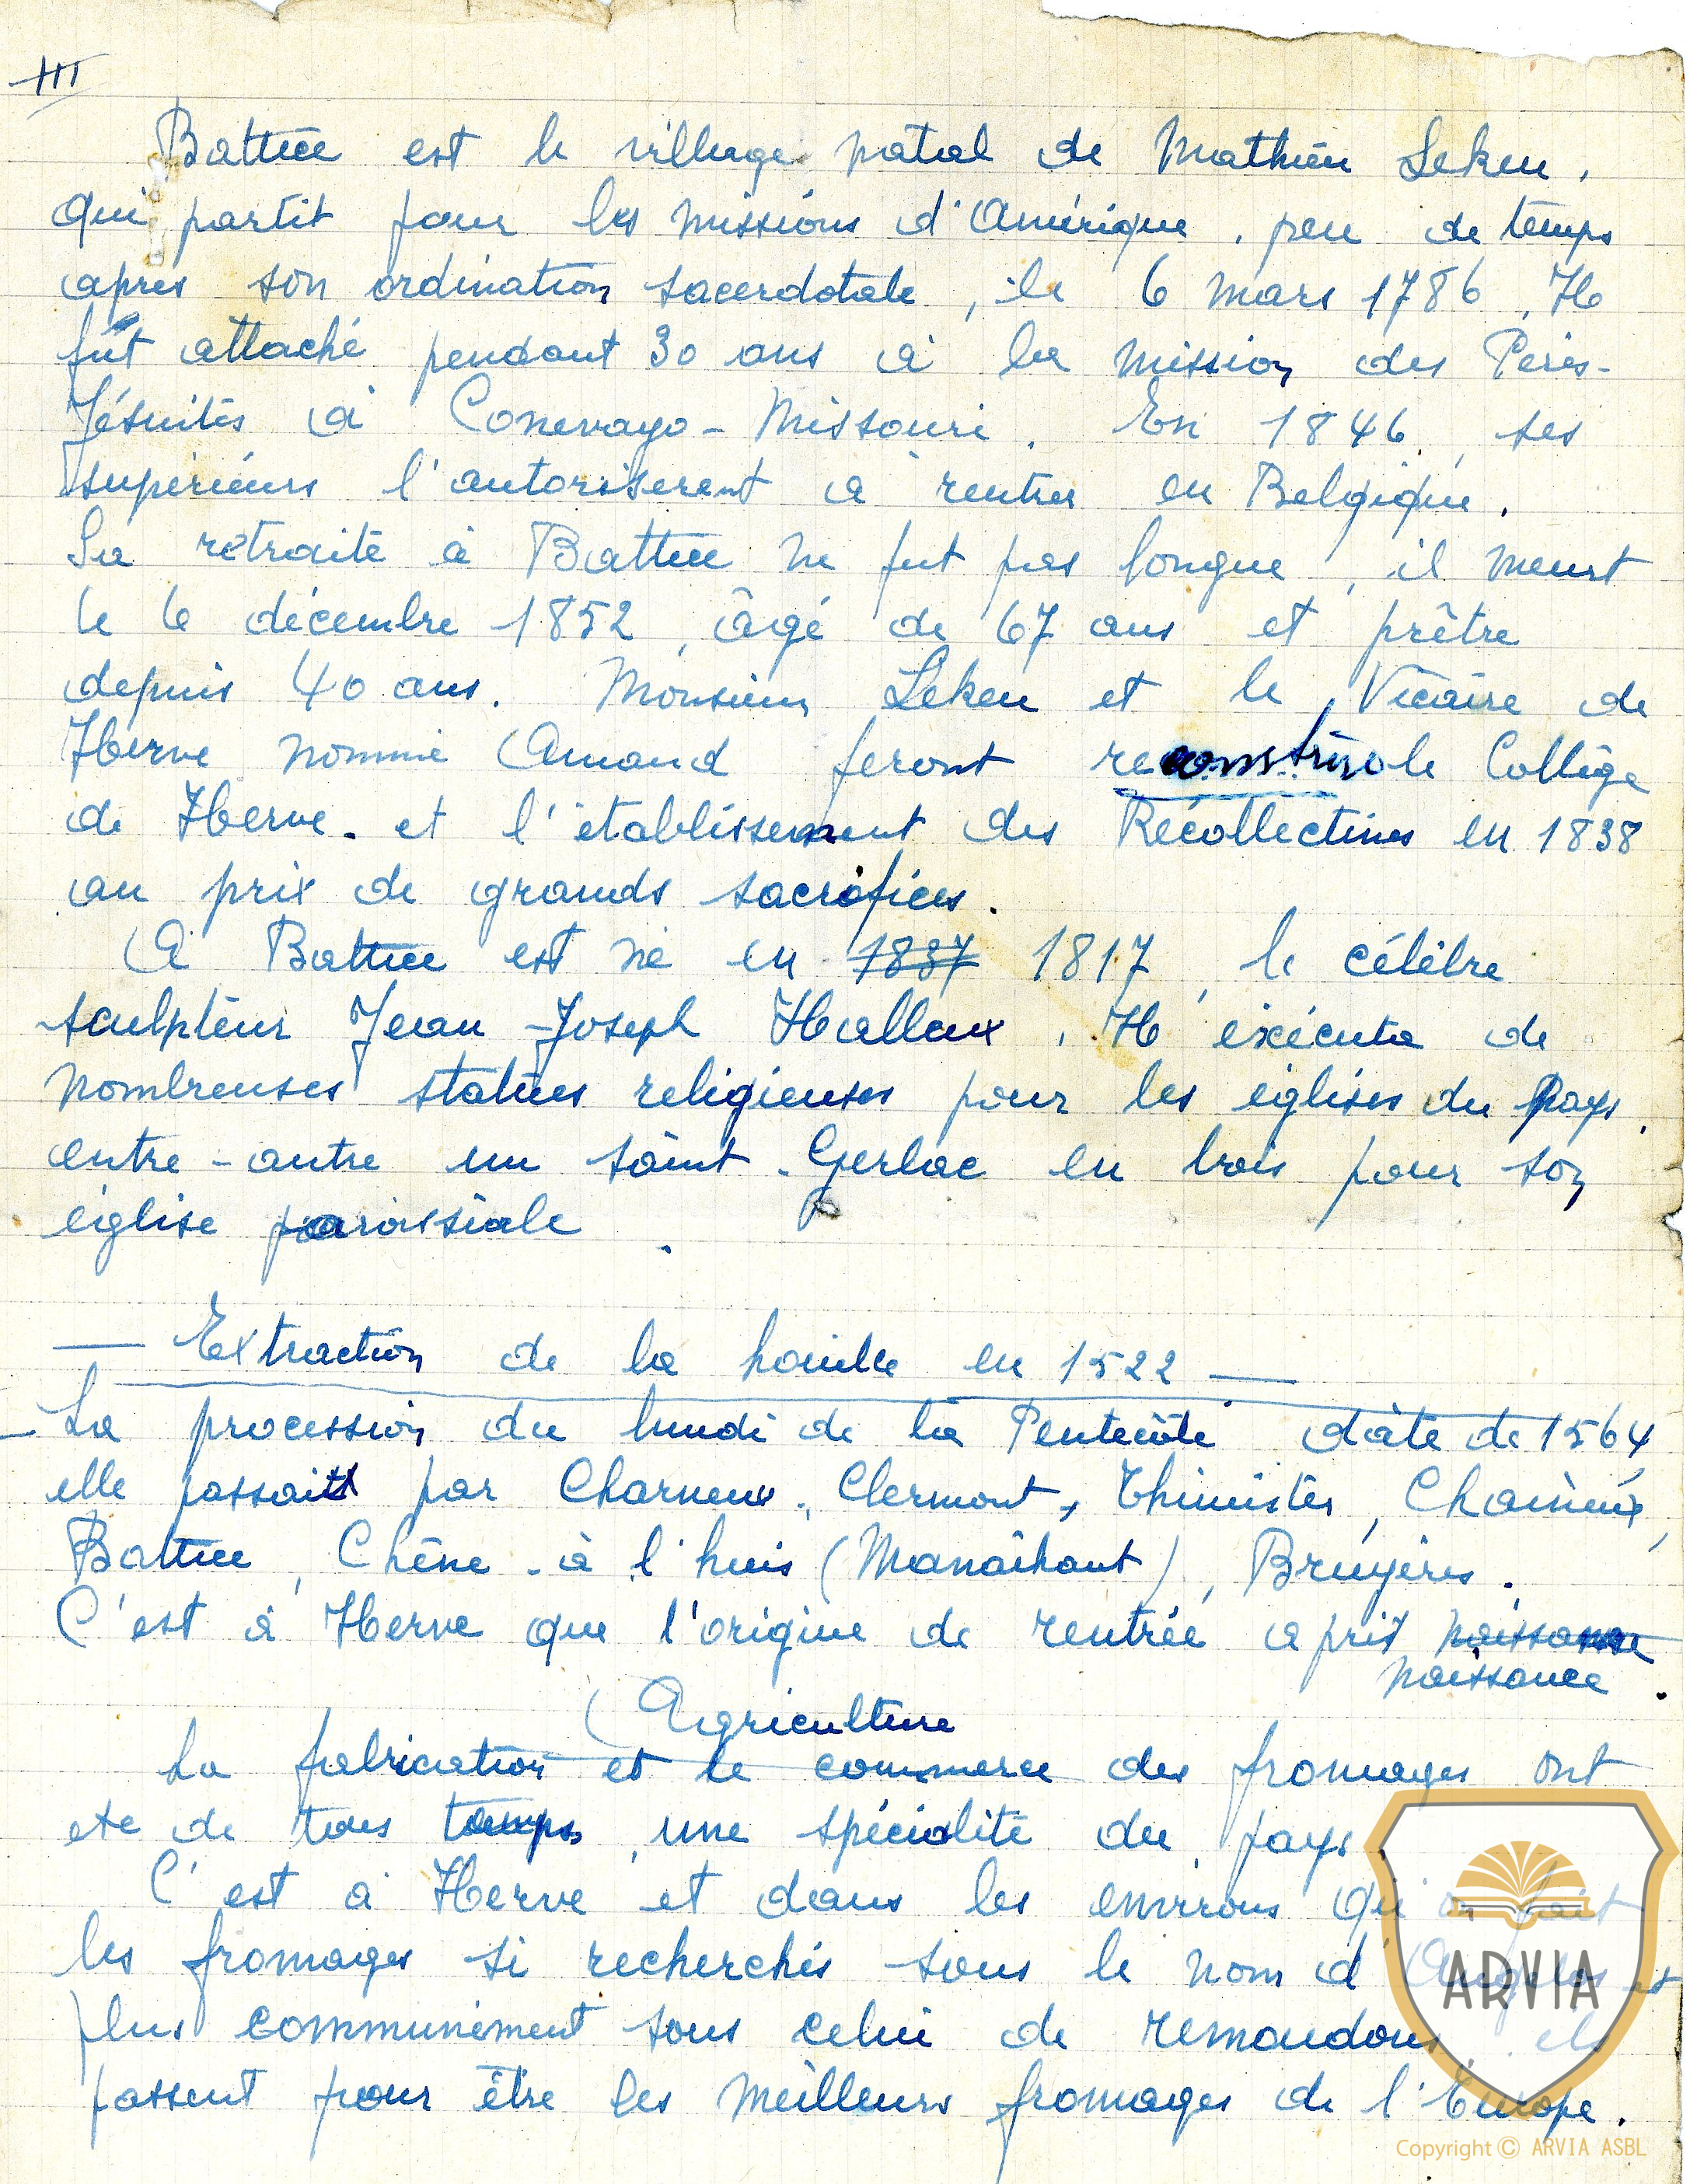 III
Battice est le village natal de Mathieu Lekeu,
qui partit pour les missions d'Amérique, peu de temps
après son ordination sacerdotale, le 6 mars 1786. Il
fut attaché pendant 30 ans à la mission des Pères-
Jésuites à Conevago - Missouri. En 1846, ses
supérieurs l'autorisèrent à rentrer en Belgique.
Sa retraite à Battice ne fut pas longue, il meurt
le 6 décembre 1852, âgé de 67 ans et prêtre
depuis 40 ans. Monsieur Lekeu et le Vicaire de
Herve nommé Amand feront reconstruire le Collège
de Herve et l'établissement des Récollectines en 1838
au prix de grands sacrifices.
A Battice est né en 1837 1817, le célèbre
sculpteur Jean-Joseph Halleux. Il exécuta de
nombreuses statues religieuses pour les églises du pays,
entre-autre un saint Gerlac en bois pour son
église paroissiale.
— Extraction de la houille en 1522 —
- La procession du lundi de la Pentecôte date de 1564
elle passait par Charneux, Clermont, Thimister, Chaineux,
Battice, Chêne-à l'huis (Manaihant), Bruyères.
C'est à Herve que l'origine de rentrée a pris naissance
naissance.
Agriculture
La fabrication et le commerce des fromages ont
été de tous temps, une spécialité du pays.
C'est à Herve et dans les environs qu'on fait
les fromages si recherchés sous le nom d'Angelos et
plus communément sous celui de remoudous, ils
passent pour être les meilleurs fromages de l'Europe.
ARVIA
Copyright © ARVIA ASBL